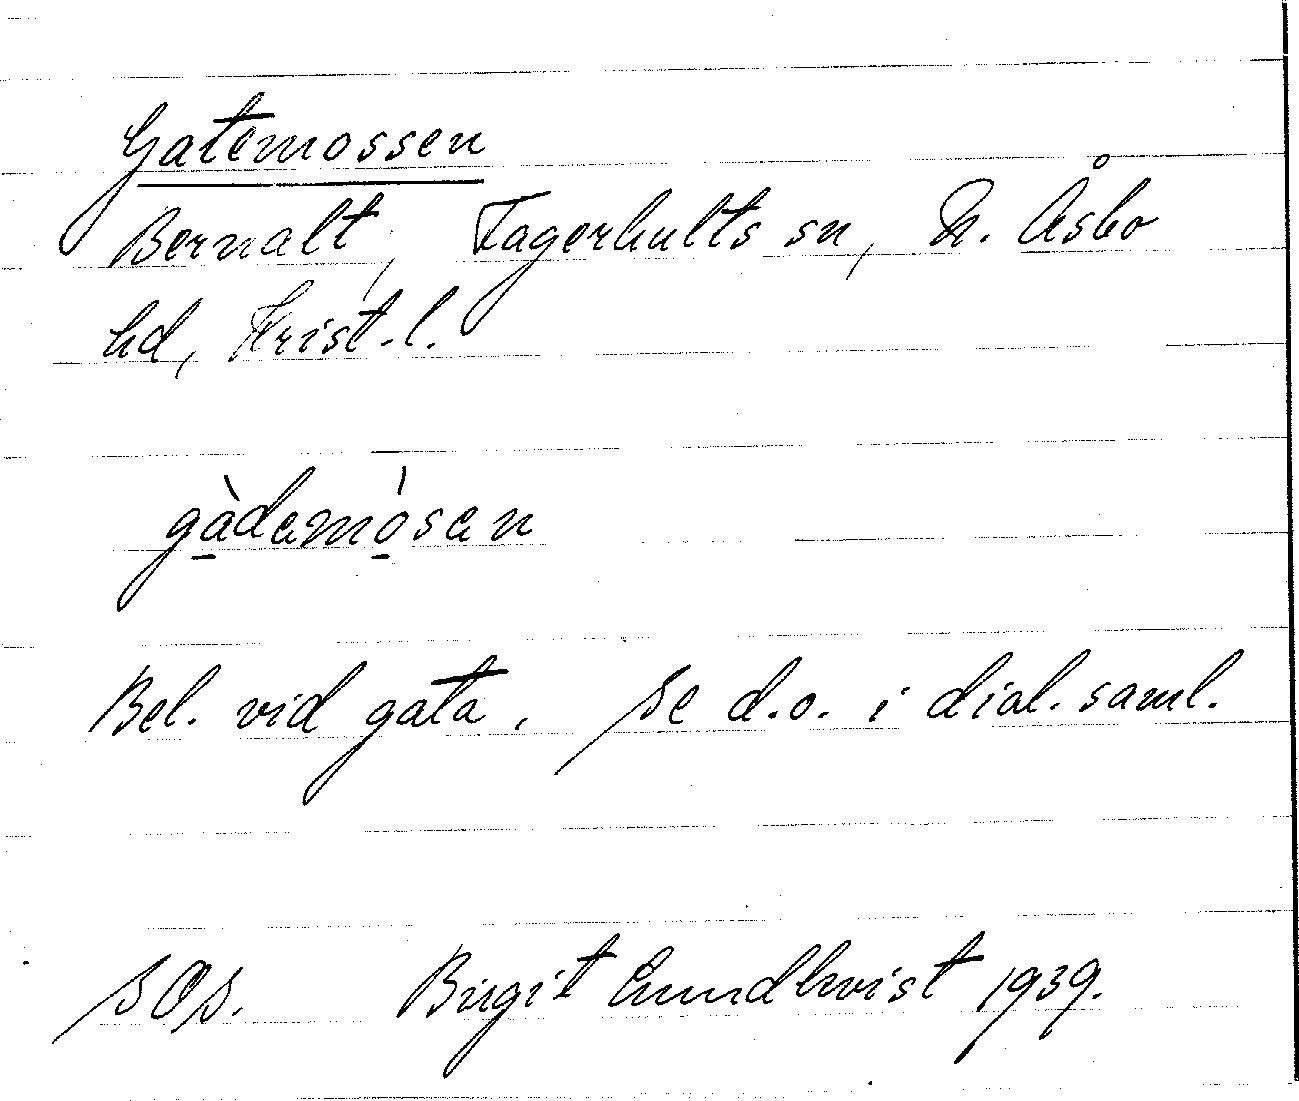 Gatemossen
Bernalt, Fagerhults sn, N. Åsbo
hd, Krist. l.
gàdemòsen
Bel. vid gata. Se d.o. i dial. saml.
SOS. Birgit Lundkvist 1939.